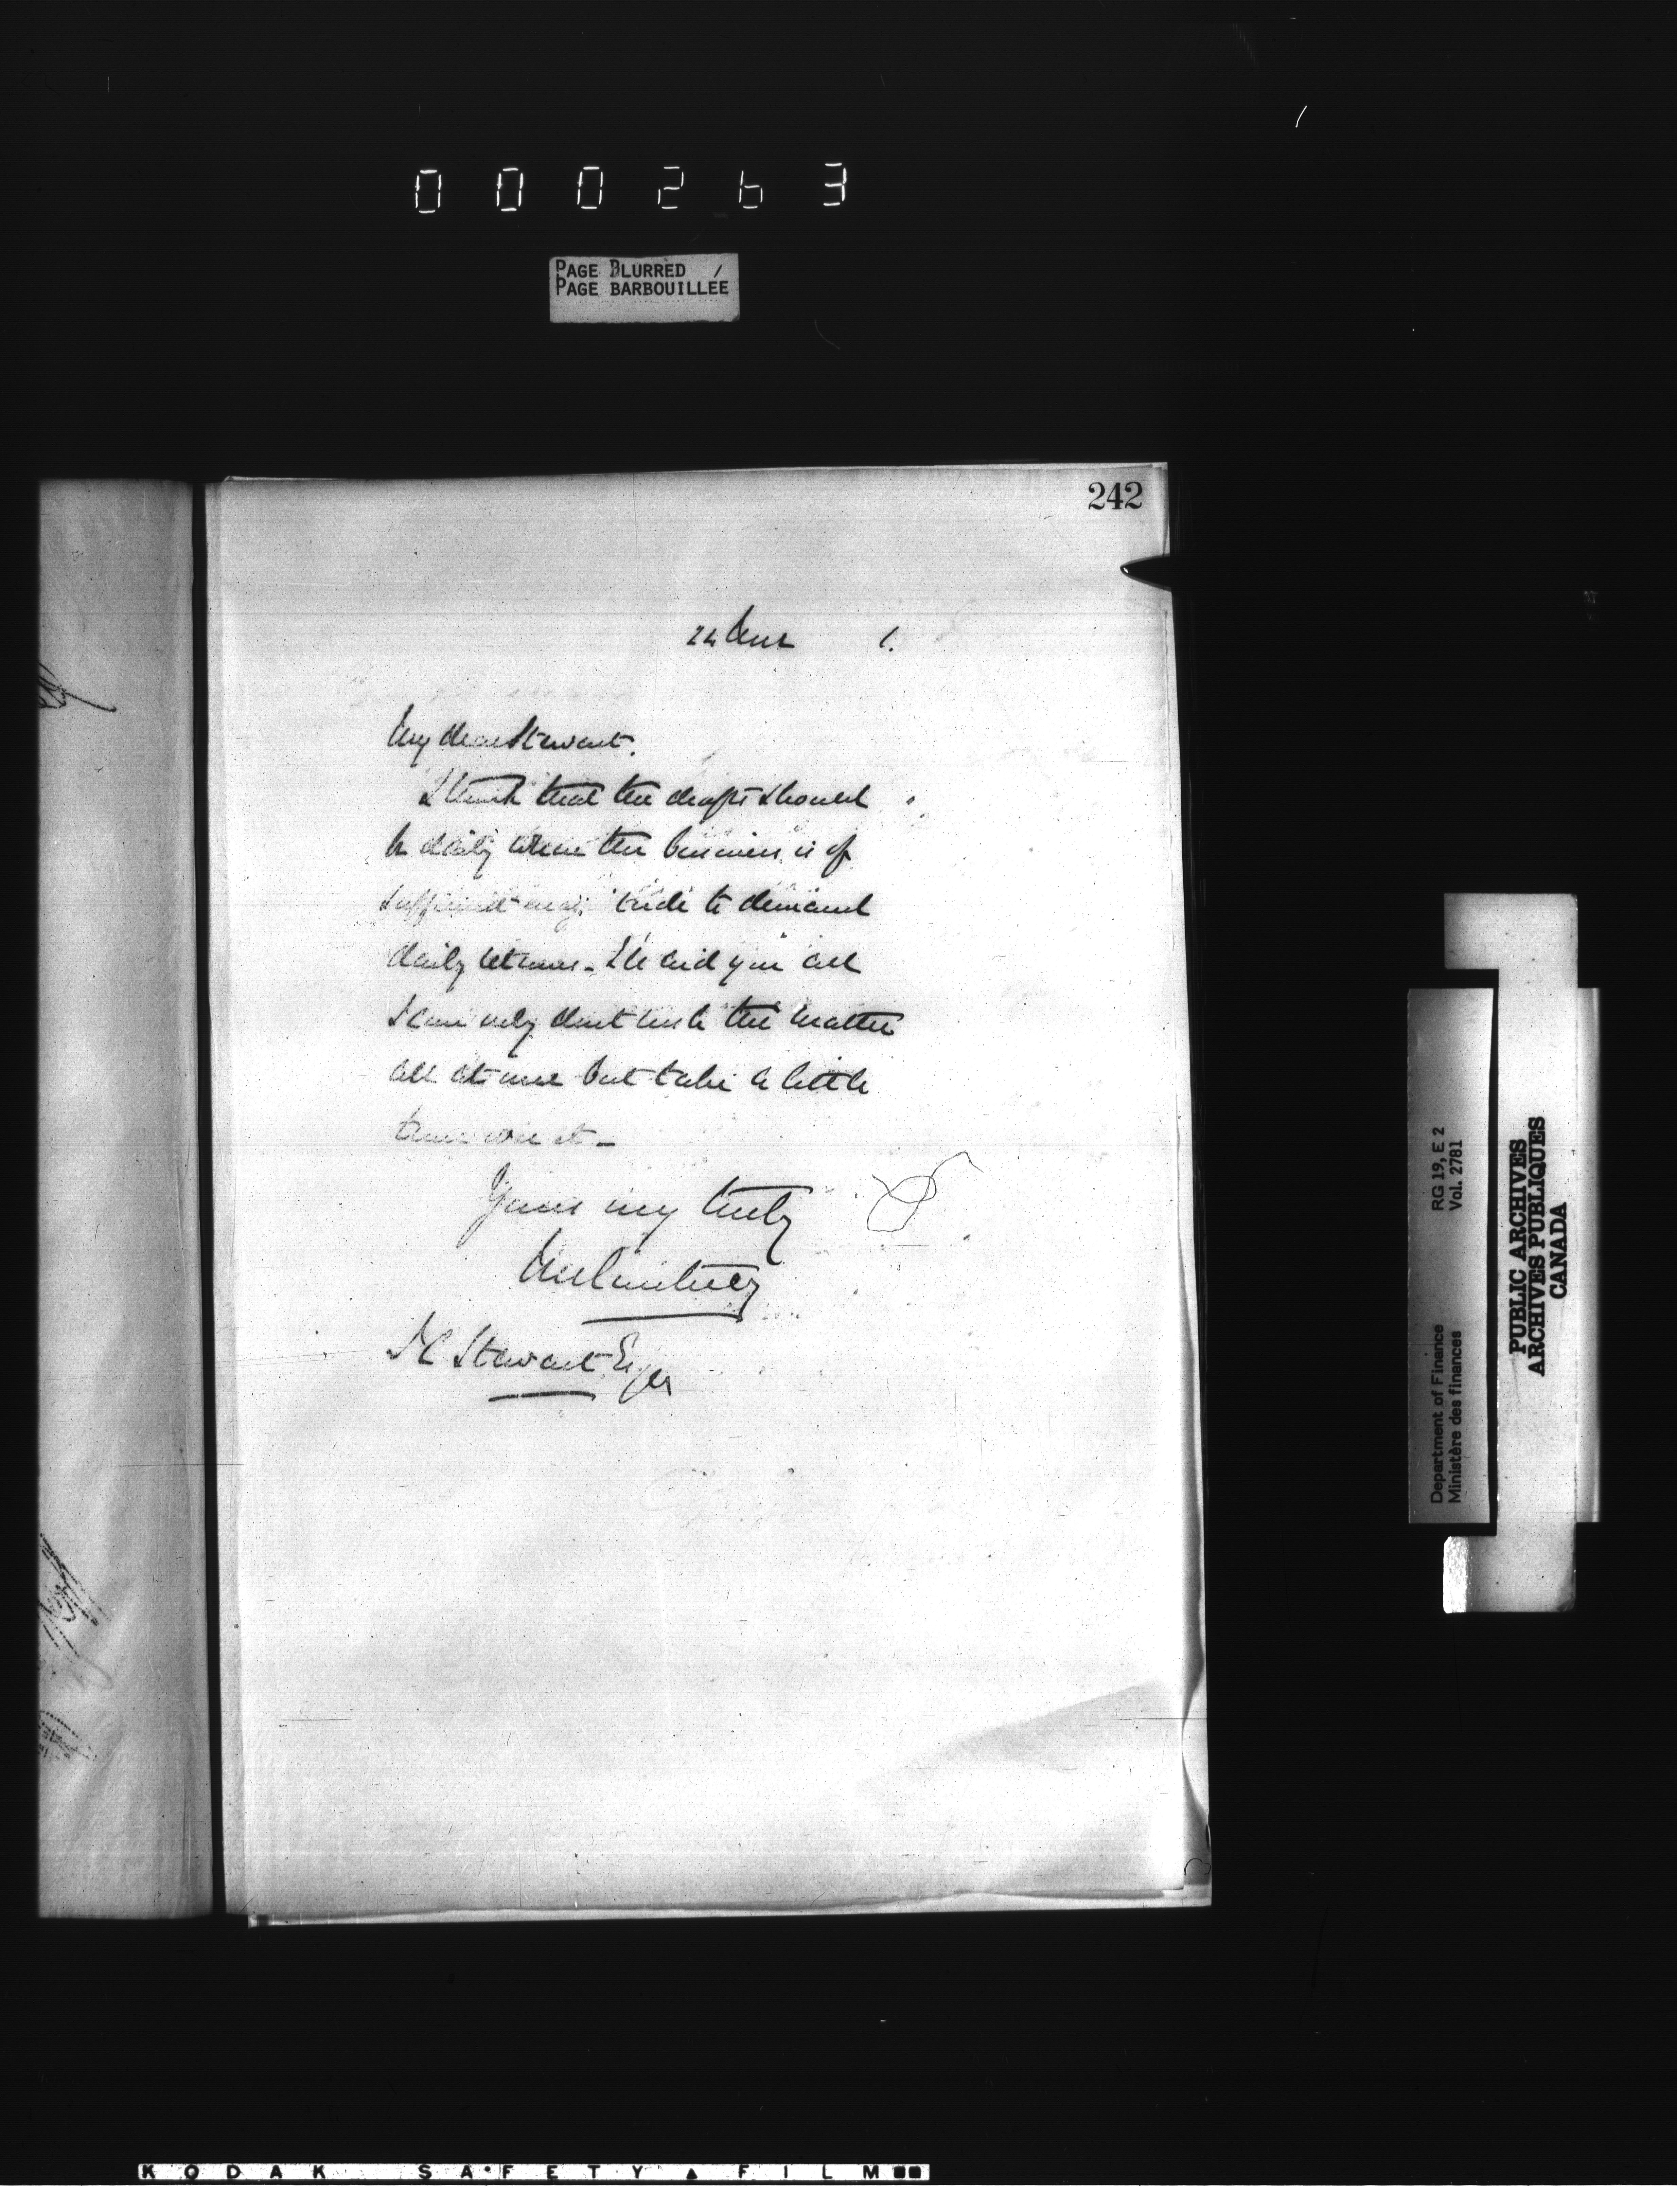 000263
PAGE BLURRED
PAGE BARBOUILLÉE
242
24 1.
My dear Stewart.
I think that the drafts should
be daily where the business is of
sufficient magnitude to demand
daily returns. I'll aid you all
I can only dont rush the matter
all at once but take a little
time over it -
Yours very truly
J C Stewart Esqre
RG 19, E 2
Vol. 2781
Department of Finance
Ministère des finances
PUBLIC ARCHIVES
ARCHIVES PUBLIQUES
CANADA
KODAK SAFETY FILM